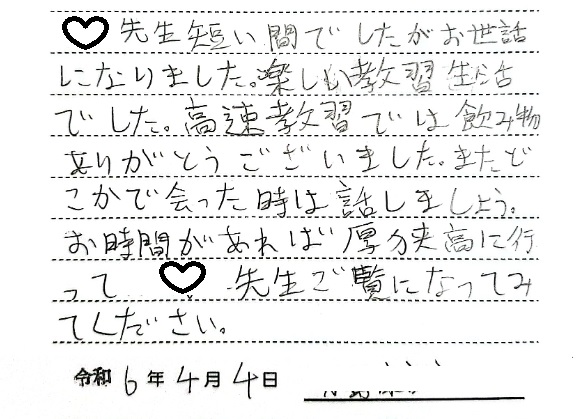 先生短い間でしたがお世話
になりました。楽しい教習生活
でした。高速教習では飲み物
ありがとうございました。またど
こかで会った時は話しましょう。
お時間があれば厚狭高に行
って 先生ご覧になってみ
てください。
令和6年4月4日